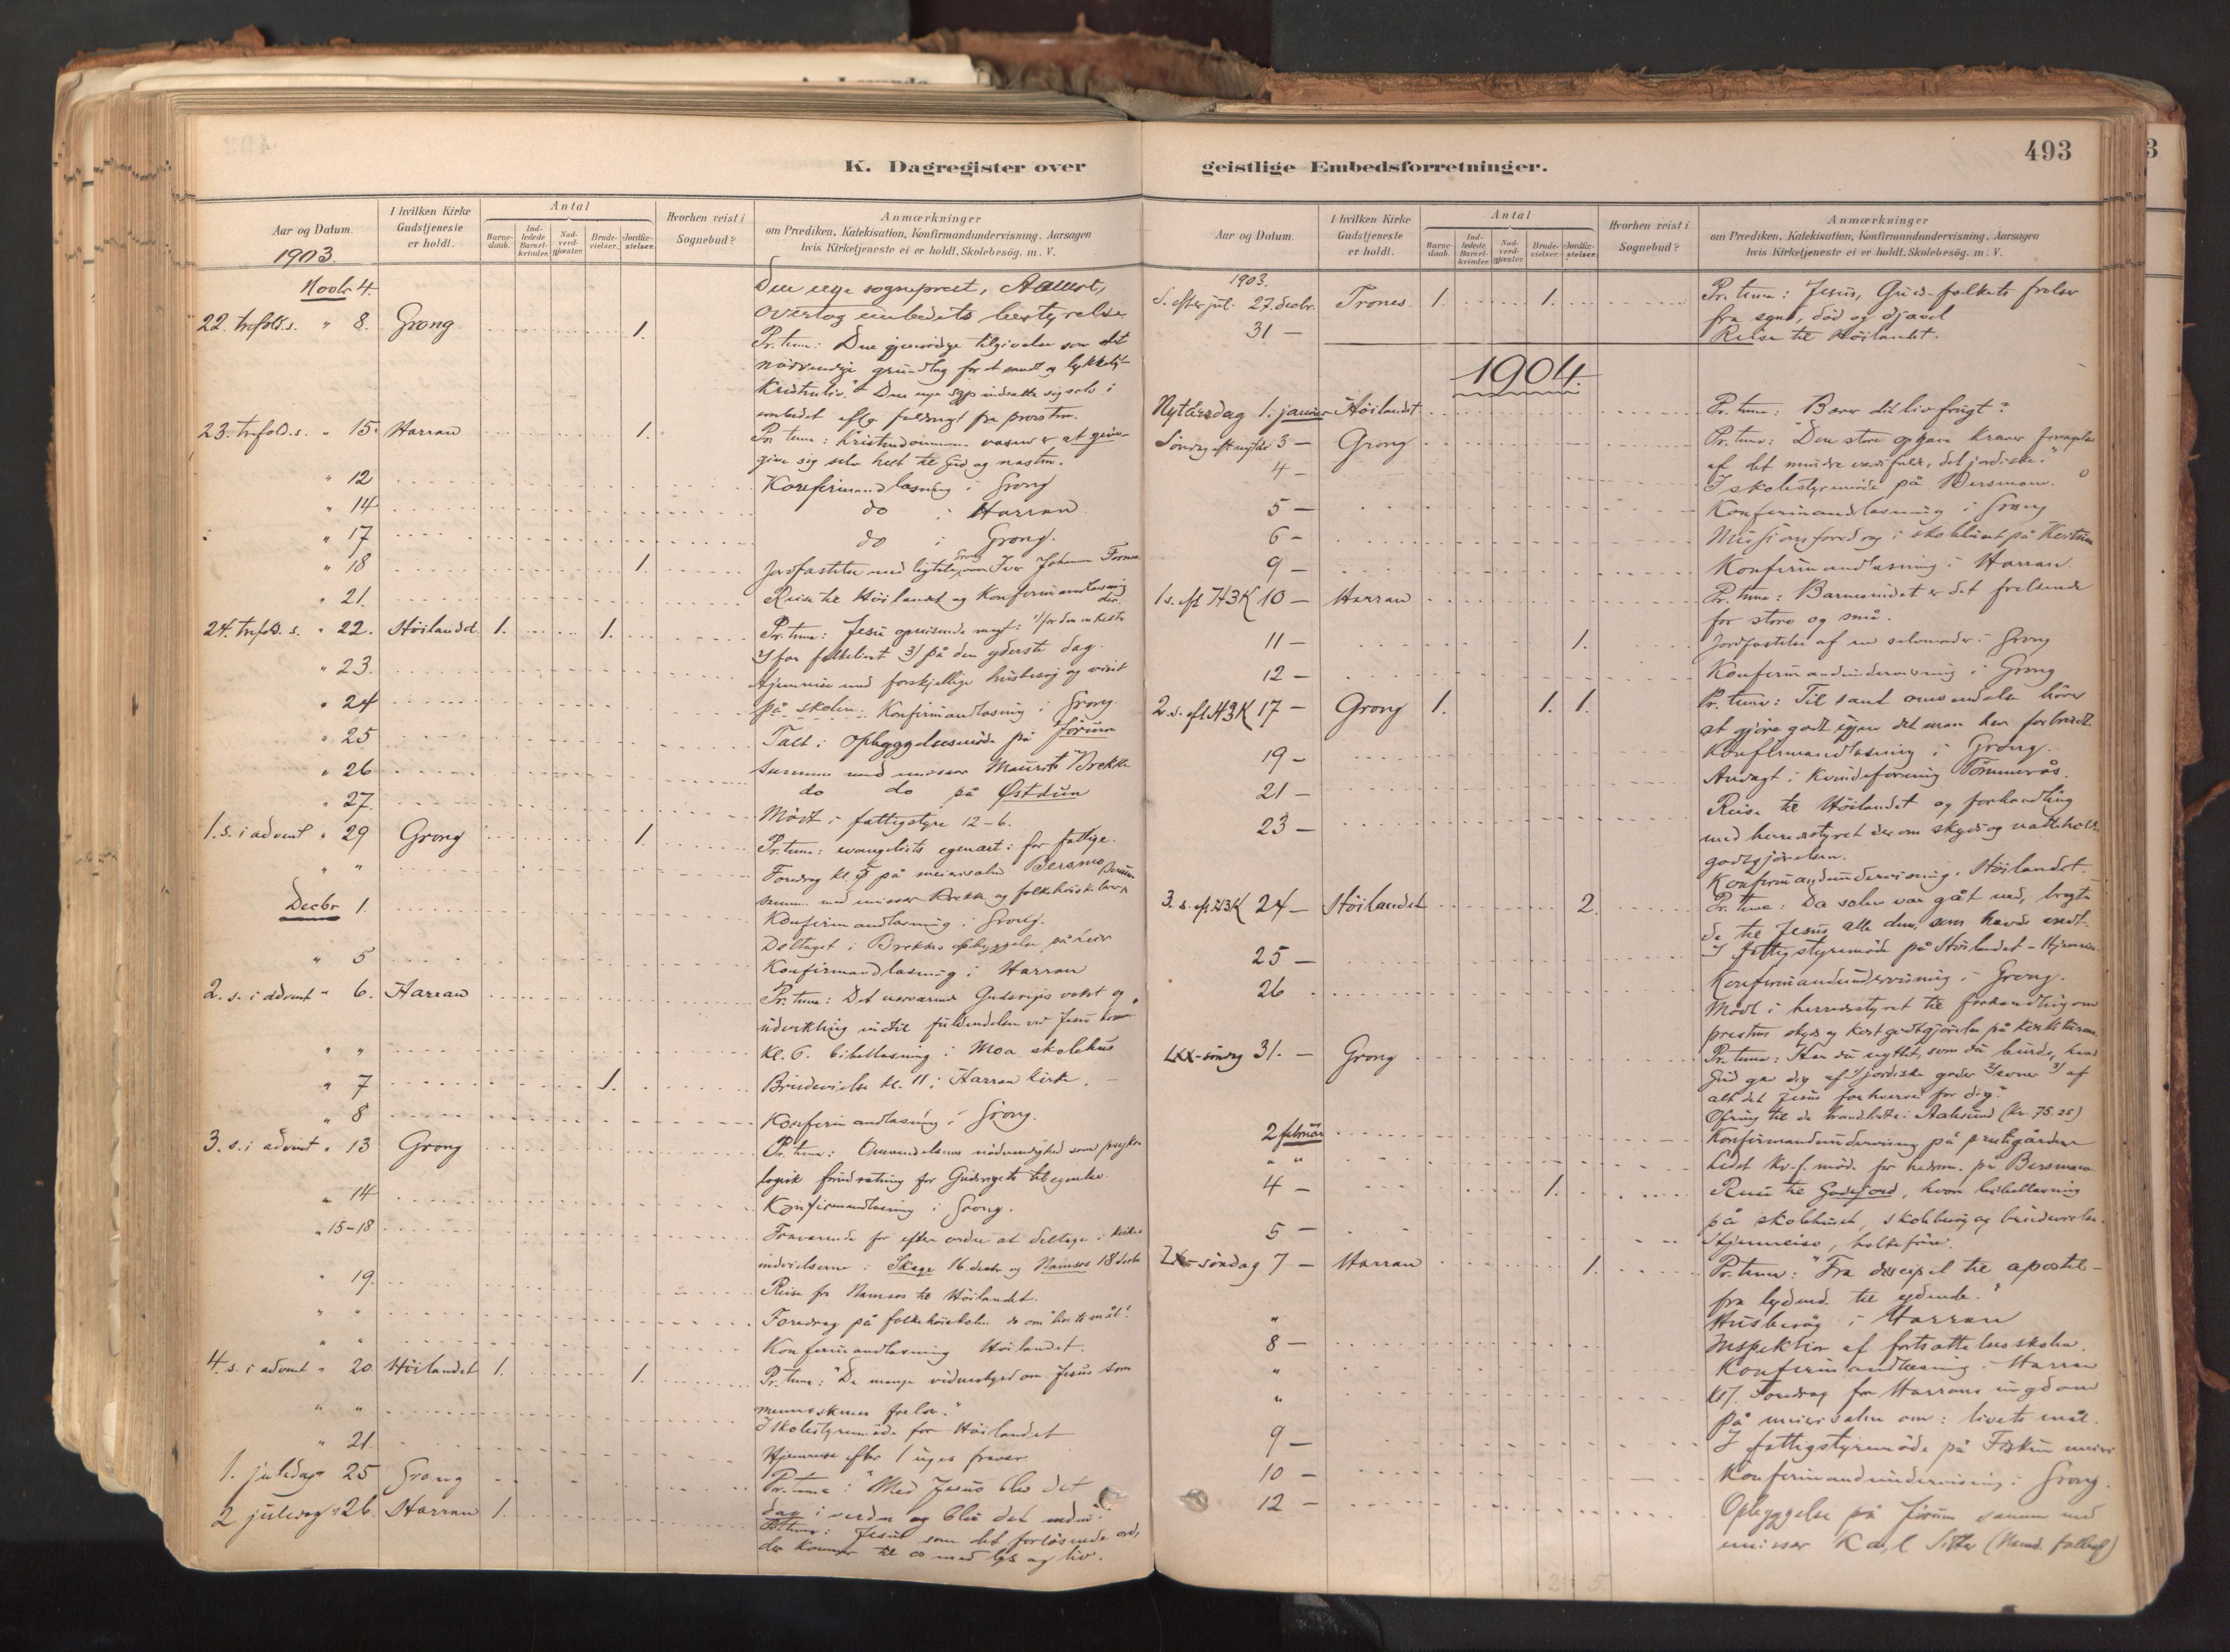 493
K. Dagregister over geistlige Embedsforretninger.
Aar og Datum.
I hvilken Kirke Gudstjeneste er holdt.
Antal
Barne-daab.
Ind-ledede Barsel-kvinder.
Nad-verd-gjæster.
Brude-vielser.
Jordfæ-stelser.
Hvorhen reist i Sognebud?
Anmærkninger
om Prædiken, Katekisation, Konfirmandundervisning, Aarsagen
hvis Kirketjeneste ei er holdt, Skolebesög. m. V.
1903.
Novbr 4.
Den nye sogneprest, Aamot,
overtog embedets bestyrelse.
22. trefold. s. " 8. Grong 1.
Pr. tema: Den gjensidige tilgivelse som det
nödvendige grundlag for et sandt og lykkeligt
embedet
23. trefold. s. " 15. Harran 1.
Pr. tema: Kristendommens væsen er at give
give sig selv helt til Gud og næsten.
" 12
Konfirmandlæsning i Grong
" 14
do i Harran
" 17
do i Grong.
" 18 1.
Jordfæstelse med ligtale over Iver Johannes
" 21.
Reise til Höilandet og Konfirmandlæsning der.
24. trefold. s. " 22. Höilandet 1. 1.
Pr. tema: Jesu opreisende magt: 1/ for den enkelte
2/ for folkelivet 3/ på den yderste dag.
" 23.
Hjemreise med forskjellige husbesög og visit
på skolen.
" 24
Konfirmandlæsning i Grong.
" 25
Talt i opbyggelsesmöde på Jörum
sammen med missær Maurits Brekke
" 26
do do på Østdun
" 27.
Mödt i fattigstyre 12-6.
1. s. i advent " 29 Grong 1.
Pr. tema: evangeliets egenart: for fattige.
" "
Foredrag kl. 5 på meierisalen Bersmo
samm. med missær Brekke og folkehöiskolelærer
Decbr 1.
Konfirmandlæsning i Grong.
Deltaget i Brekkes opbyggelse på
" 5
Konfirmandlæsning i Harran
2. s. i advent " 6. Harran
Pr. tema: Det nærværende Gudsriges vækst og
udvikling indtil fuldendelsen ved Jesu komme.
" "
Kl. 6. bibellæsning i Moa skolehus
" 7 1.
Brudevielse kl. 11 i Harran kirke.
" 8
Konfirmandlæsning i Grong.
3. s. i advent " 13 Grong
Pr. tema: Omvendelsens nödvendighed som psyko-
logisk forudsætning for Gudsrigets tilegnelse.
" 14
Konfirmandlæsning i Grong.
" 15-18
Fraværende for efter ordre at deltage i kirke-
indvielserne i Skage 16 decbr og Namsos 18 decbr
" 19.
Reise fra Namsos til Höilandet.
" "
Foredrag på folkehöiskolen der om "livets mål".
" "
Konfirmandlæsning Höilandet.
4. s. i advent " 20 Höilandet 1. 1.
Pr. tema: "De mange vidnesbyrd om Jesus som
menneskenes frelser."
" "
I skolestyremöde for Höilandet
" 21.
Hjemreise efter 1 uges fravær
1. juledag " 25 Grong
Pr. tema: "Med Jesus blev det
dag i verden og bliv det endnu".
2 juledag " 26. Harran 1.
Pr. tema: Jesus som det forlösende ord,
der kommer til os med lys og liv.
Aar og Datum.
I hvilken Kirke Gudstjeneste er holdt.
Antal
Barne-daab.
Ind-ledede Barsel-kvinder.
Nad-verd-gjæster.
Brude-vielser.
Jordfæ-stelser.
Hvorhen reist i Sognebud?
Anmærkninger
om Prædiken, Katekisation, Konfirmandundervisning, Aarsagen
hvis Kirketjeneste ei er holdt, Skolebesög. m. V.
1903.
S. efter jul. 27. decbr. Trones 1. 1.
Pr. tema: Jesus, Guds-folkets frelser
fra synd, död og djævel
31 –
Reise til Höilandet.
1904.
Nytårsdag 1. januar Höilandet
Pr. tema: Bærer dit liv frugt?
Söndag eft nytår 3 – Grong
Pr. tema: "Den store opgave kræver forsagelse
af det mindre værdifulde, det jordiske."
4 –
I skolestyremöde på Bersmoen.
5 –
Konfirmandlæsning i Grong
6 –
Missionsforedrag i skolehuset på
9 –
Konfirmandlæsning i Harran.
1 s. eft H3K 10 – Harran
Pr. tema: Barnesindet er det frelsende
for store og små.
11 – 1.
Jordfæstelse af en selvmorder i Grong
12 –
Konfirmandundervisning i Grong
2. s. eft H3K 17 – Grong 1. 1. 1.
Pr. tema: Til sand omvendelse hörer
at gjöre godt igjen det man har forbrudt.
19 –
Konfirmandlæsning i Grong.
21 –
Andagt i Kvindeforening Tömmerås.
23 –
Reise til Höilandet og forhandling
med herredsstyret der om skyds og
godtgjörelsen.
Konfirmandundervisning. Höilandet.
3. s. eft. H3K 24 – Höilandet 2.
Pr. tema: Da solen var gåt ned, bragte
de til Jesus alle dem, som havde ondt.
25 –
I fattigstyremöde på Höilandet – Hjemreise.
26
Konfirmandundervisning i Grong.
Mödt i herredsstyret til forhandling om
prestens skyds og kostgodtgjörelse på
LXX-söndag 31. – Grong
Pr. tema: Har du nyttet, som du burde, hvad
Gud gav dig af 1/ jordiske goder 2/ evner 3/ af
alt det Jesus forhverved for dig?
Ofring til de brandlidte i Aalesund (Kr. 75.25)
2 februar
Konfirmandundervisning på prestegården
" "
Ledet Kv.f. möde for hedem. på Bersmoen
4 – 1.
Reise til Gudsfjord, hvor bibellæsning
på skolehuset, skolebesög og brudevielse.
5 –
Hjemreise, holkeföre.
LX-söndag 7 – Harran 1.
Pr. tema: "Fra discipel til apostel –
fra lydende til ydende."
"
Husbesög i Harran
8 –
Inspektion af fortsættelsesskolen.
"
Konfirmandlæsning i Harran
"
Kl 7. Foredrag for Harrans ungdom
på meierisalen om: livets mål.
9 –
I fattigstyremöde på Fiskum meieri
10 –
Konfirmandundervisning i Grong.
12 –
Opbyggelse på Jörum samm. med
missær Karl Sitter